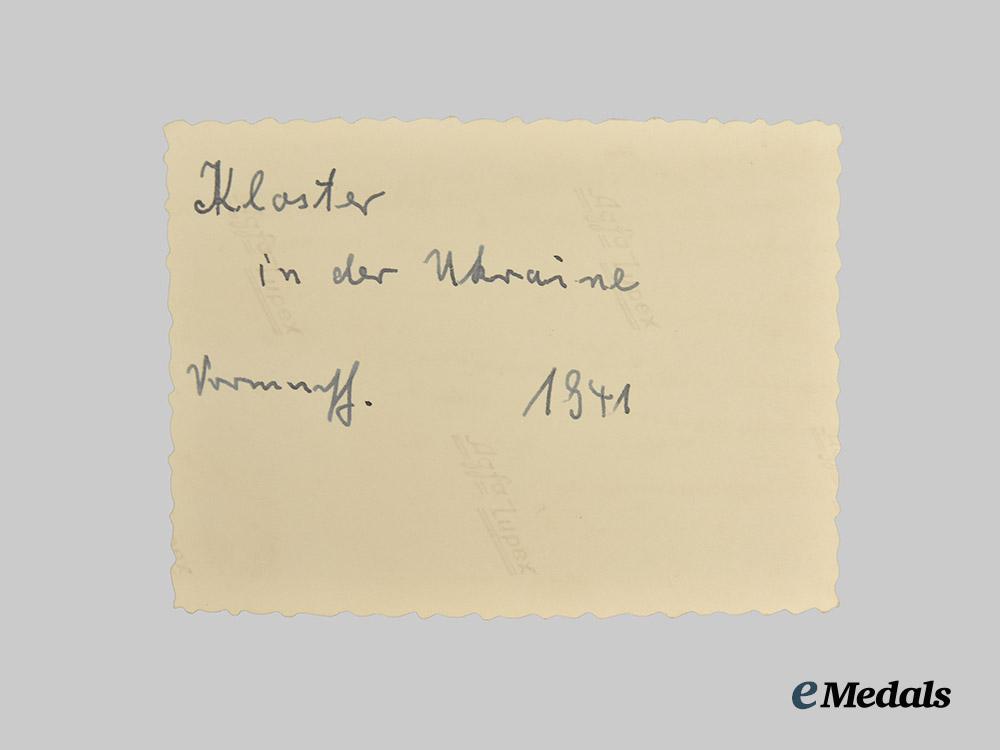 Kloster
in der Ukraine
1941
Agfa Lupex
Agfa Lupex
Agfa Lupex
eMedals